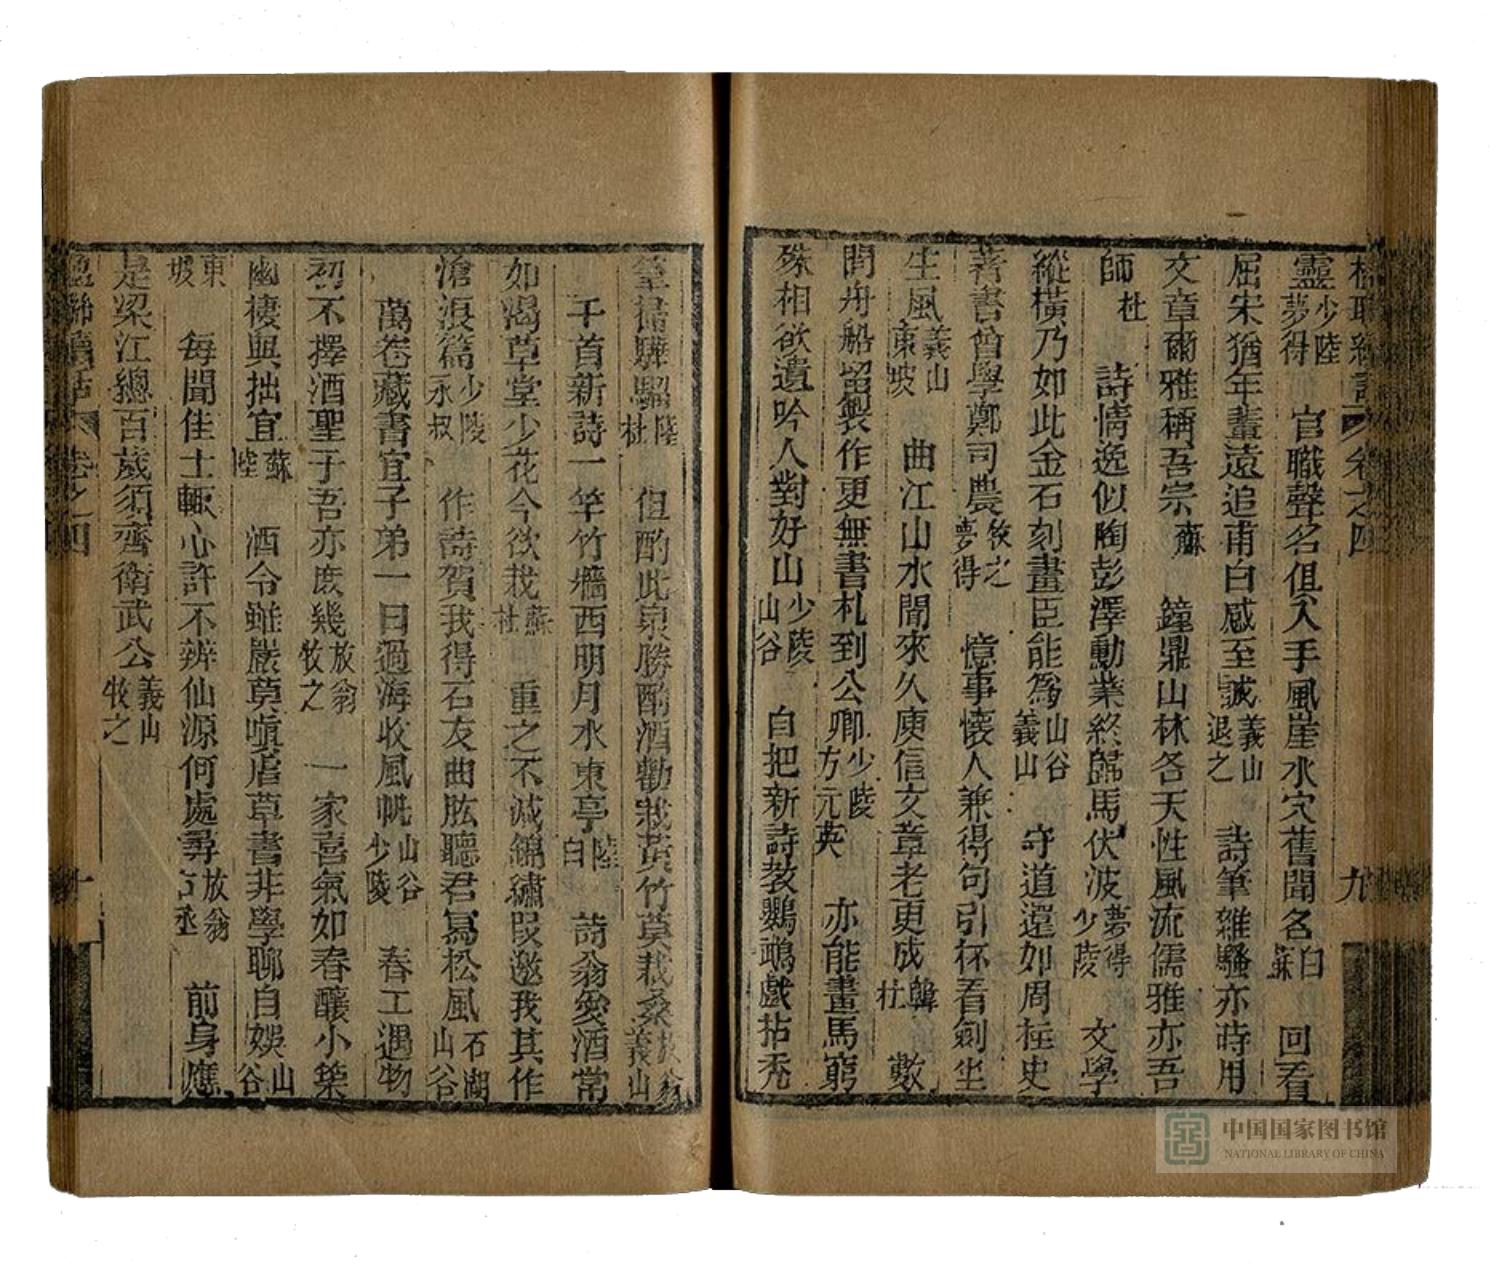 楹聯續話 卷之四 九
靈少陵夢得 官職聲名俱入手風崖水穴舊聞名白蘇 回看
屈宋猶年輩遠追甫白感至誠義山退之 詩筆離騷亦時用
文章爾雅稱吾宗蘇 鐘鼎山林各天性風流儒雅亦吾
師杜 詩情逸似陶彭澤勳業終歸馬伏波夢得少陵 文學
縱橫乃如此金石刻畫臣能爲山谷義山 守道還如周柱史
著書曾學鄭司農牧之夢得 憶事懷人兼得句引杯看劍坐
生風義山東坡 曲江山水聞來久庾信文章老更成韓杜 數
間舟船留製作更無書札到公卿少陵方元英 亦能畫馬窮
殊相欲遣吟人對好山少陵山谷 自把新詩教鸚鵡戲拈禿
筆掃驊騮陸杜 但酌此泉勝酌酒勸栽黃竹莫栽桑放翁義山
千首新詩一竿竹墻西明月水東亭陸白 詩翁愛酒常
如渴草堂少花今欲栽蘇杜 重之不減錦繡段邀我其作
滄浪篇少陵永叔 作詩賀我得石友曲肱聽君寫松風石湖山谷
萬卷藏書宜子弟一日過海收風帆山谷少陵 春工遇物
初不擇酒聖于吾亦庶幾放翁牧之 一家喜氣如春釀小築
幽棲與拙宜蘇陸 酒令雖嚴莫嗔虐草書非學聊自娛山谷
東坡 每聞佳士輒心許不辨仙源何處尋放翁右丞 前身應
是梁江總百歲須齊衛武公義山牧之
楹聯續話 卷之四 十
中国国家图书馆
NATIONAL LIBRARY OF CHINA